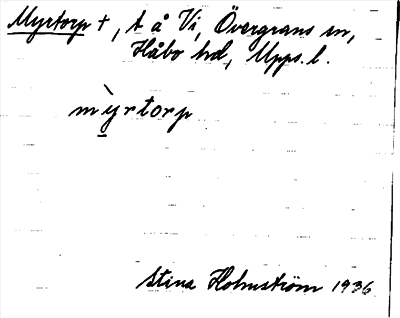 Myrtorp +, t å Vi, Övergrans sn,
Håbo hd, Upps. l.
mỳrtorp
Stina Holmström 1936